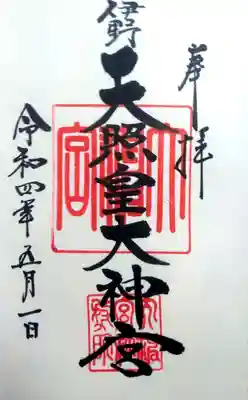 奉拝
伊野
天照皇大神宮
令和四年五月一日